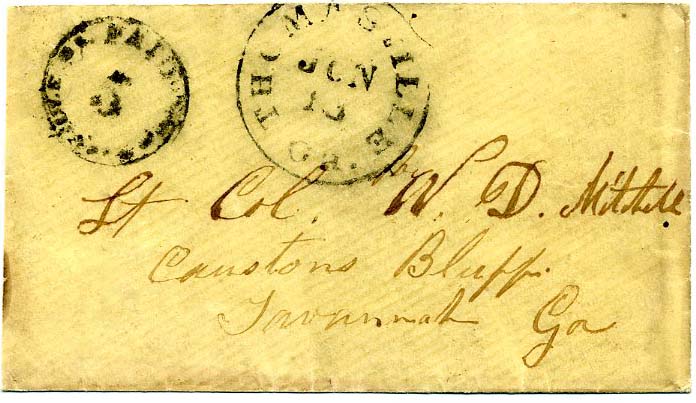 5
THOMASVILLE
JUN
13
Ga.
Lt Col. W. D. Mitchell
Caustons Bluff.
Savannah Ga